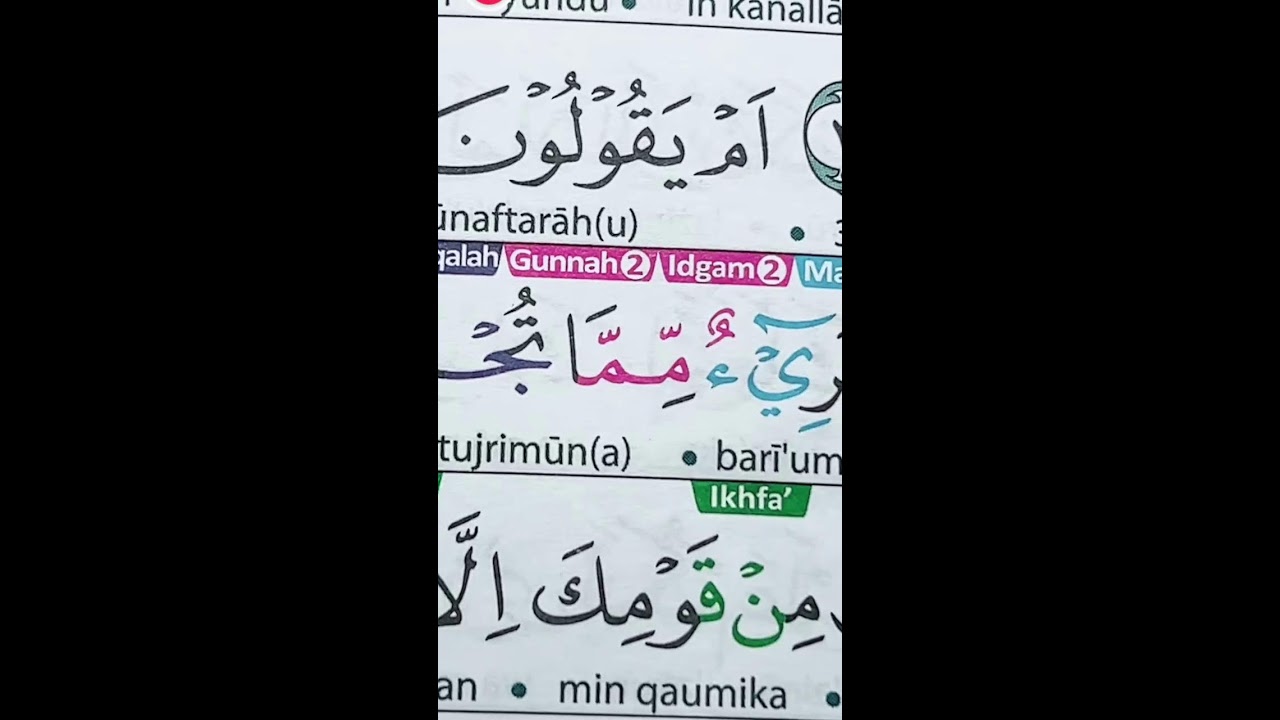 in kanallā
اَمْ يَقُوْلُوْنَ
ūnaftarāh(u) • 3
qalah Gunnah 2 Idgam 2 Ma
رِيْۤءٌ مِّمَّا تُجْ
tujrimūn(a) • barī'um
Ikhfa’
مِنْ قَوْمِكَ اِلَّا
an • min qaumika •